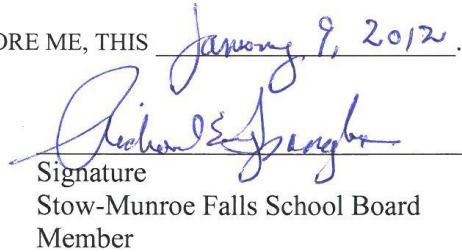 ORE ME, THIS January 9, 2012.
Richard E.
Signature
Stow-Munroe Falls School Board
Member